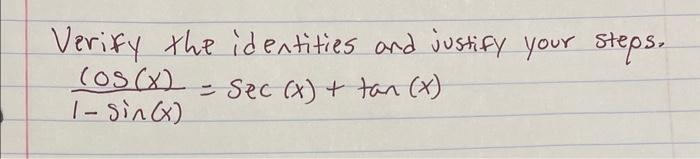 Verify the identities and justify your steps.
cos(x) / 1 - sin(x) = sec (x) + tan (x)